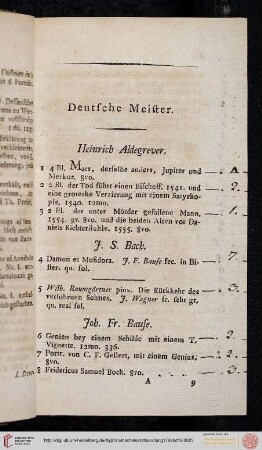 Deutſche Meiſter.
Heinrich Aldegrever.
1 4 Bl. Mars, derſelbe anders, Jupiter und
Merkur. 8vo.
2 2 Bl. der Tod führt einen Biſchoff. 1541. und
eine groteske Verzierung mit einem Satyrko-
pfe. 1540. 12mo.
3 2 Bl. der unter Mörder gefallene Mann.
1554. gr. 8vo. und die beiden Alten vor Da-
niels Richterſtuhle. 1555. 8vo.
J. S. Bach.
4 Damon et Muſidora. J. F. Bauſe fec. in Bi-
ſter. qu. fol.
5 Wilh. Baumgärtner pinx. Die Rückkehr des
verlohrnen Sohnes, J. Wagner ſc. ſehr gr.
qu. real fol.
Joh. Fr. Bauſe.
6 Genius bey einem Schilde mit einem T,
Vignette. 12mo. 336.
7 Portr. von C. F. Gellert, mit einem Genius,
8vo.
8 Fridericus Samuel Bock. 8vo.
A 9
2.
1.
7
3.
2.
2.
UNIVERSITÄTS-
BIBLIOTHEK
HEIDELBERG